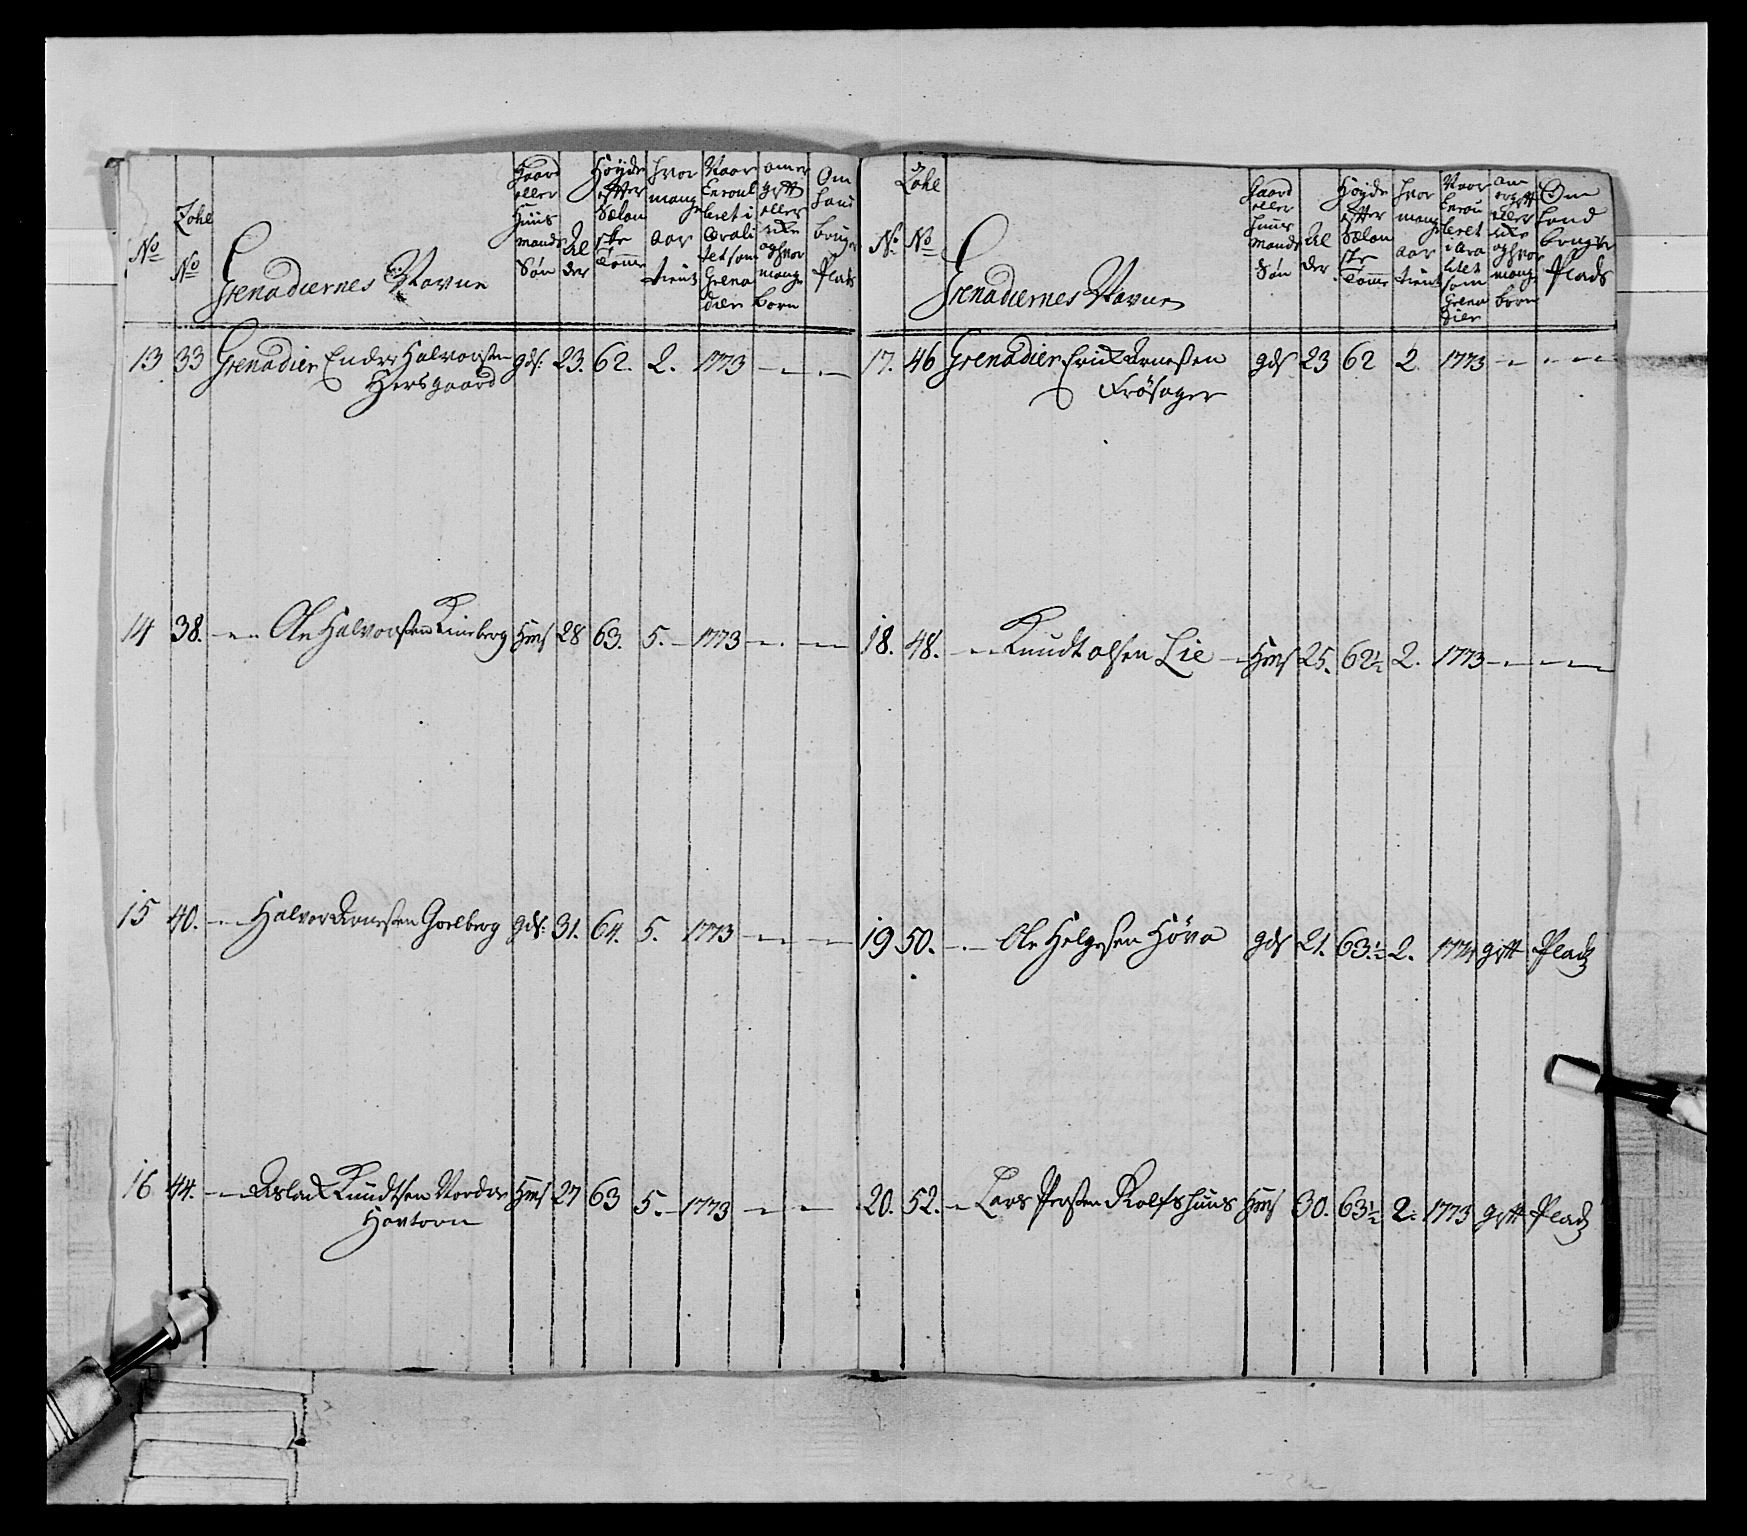 No
Zohl No
Grenadiernes Navne
Gaard eller Huus mands Søn
Al der
Höyde efter Sælan ske Tomme
hvor mange aar tient
Naar Enroul leret i Qvali tet som Grena dier
om er gift eller ikke og hvor mange born
Om hand bruger Plads
13. 33 Grenadier Endre Halvorsen gds: 23. 62. 2. 1773 - - -
Hersgaard
14 38. - - Ole Halvorsen Kineberg Hms 28 63. 5. - 1773 - - -
15 40. - - Halvor Arnesen Goelberg gds: 31. 64. 5. 1773 - - -
16 44. - Aslack Knudtsen Nordre Hms 27 63 5. - 1773 - -
Hovtorn
No.
Zohl No
Grenadiernes Navne
Gaard eller Huus mands Søn
Al der.
Höyde efter Sælan ske Tomme
hvor mange aar tient
Naar Enrou leret i Qva litet som Grena dier
om er gift eller ikke og hvor mange born
Om hand bruger Plads
17. 46 Grenadier Erick Arnesen gds 23 62 2. 1773 - - -
Frösager
18. 48. - - Knudt olsen Lie - Hms 25. 62½ 2. 1773 - - -
19 50. - - Ole Helgesen Höva gds 21. 63.½ 2. 1774 gift Pladz
20. 52. - Lars Persen Rolfshuus Hms 30. 63½ 2. 1773 gift Pladz